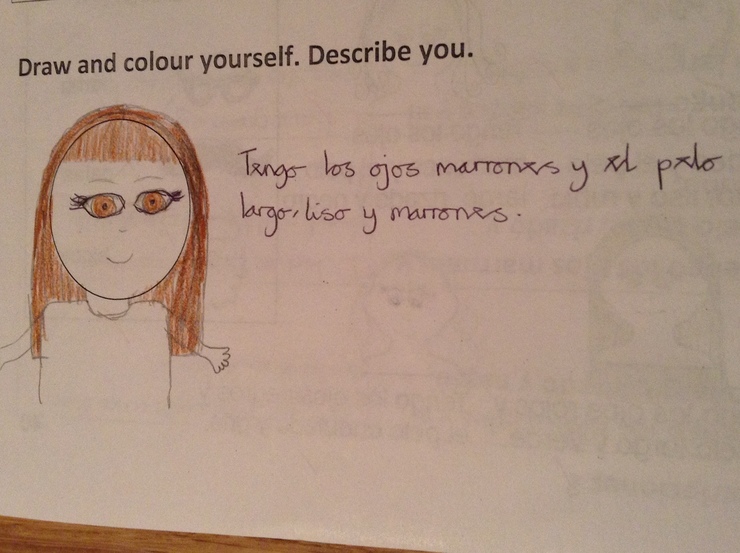 Draw and colour yourself. Describe you.
Tengo los ojos marrones y el pelo
largo, liso y marrones.